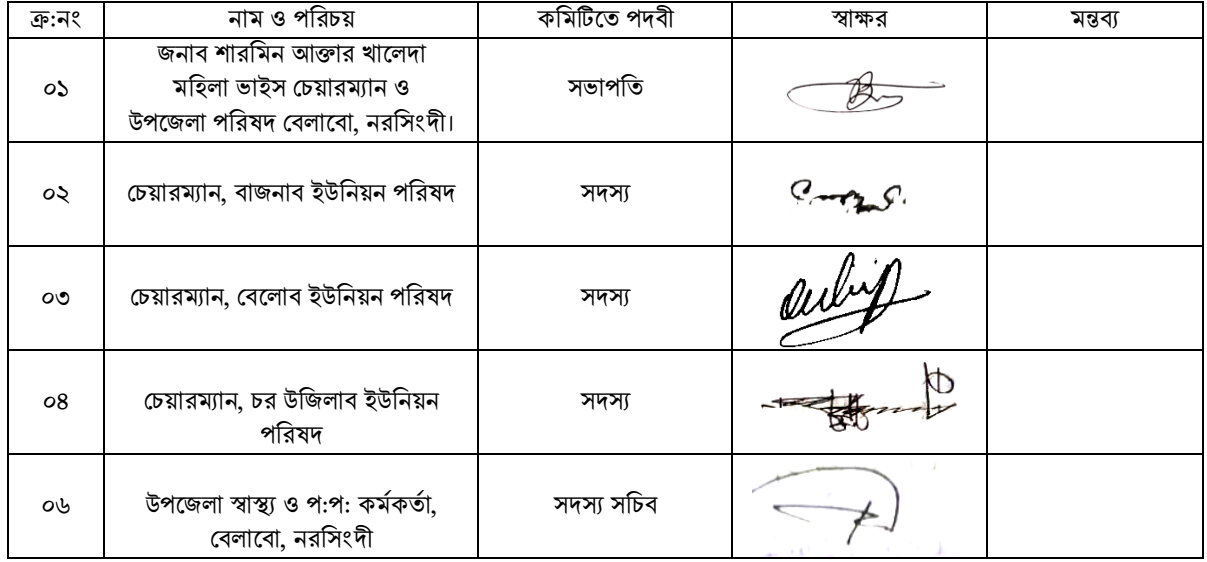 ক্র:নং নাম ও পরিচয় কমিটিতে পদবী স্বাক্ষর মন্তব্য
জনাব শারমিন আক্তার খালেদা
০১ মহিলা ভাইস চেয়ারম্যান ও সভাপতি
উপজেলা পরিষদ বেলাবো, নরসিংদী।
০২ চেয়ারম্যান, বাজনাব ইউনিয়ন পরিষদ সদস্য
০৩ চেয়ারম্যান, বেলোব ইউনিয়ন পরিষদ সদস্য
০৪ চেয়ারম্যান, চর উজিলাব ইউনিয়ন সদস্য
পরিষদ
০৬ উপজেলা স্বাস্থ্য ও প:প: কর্মকর্তা, সদস্য সচিব
বেলাবো, নরসিংদী